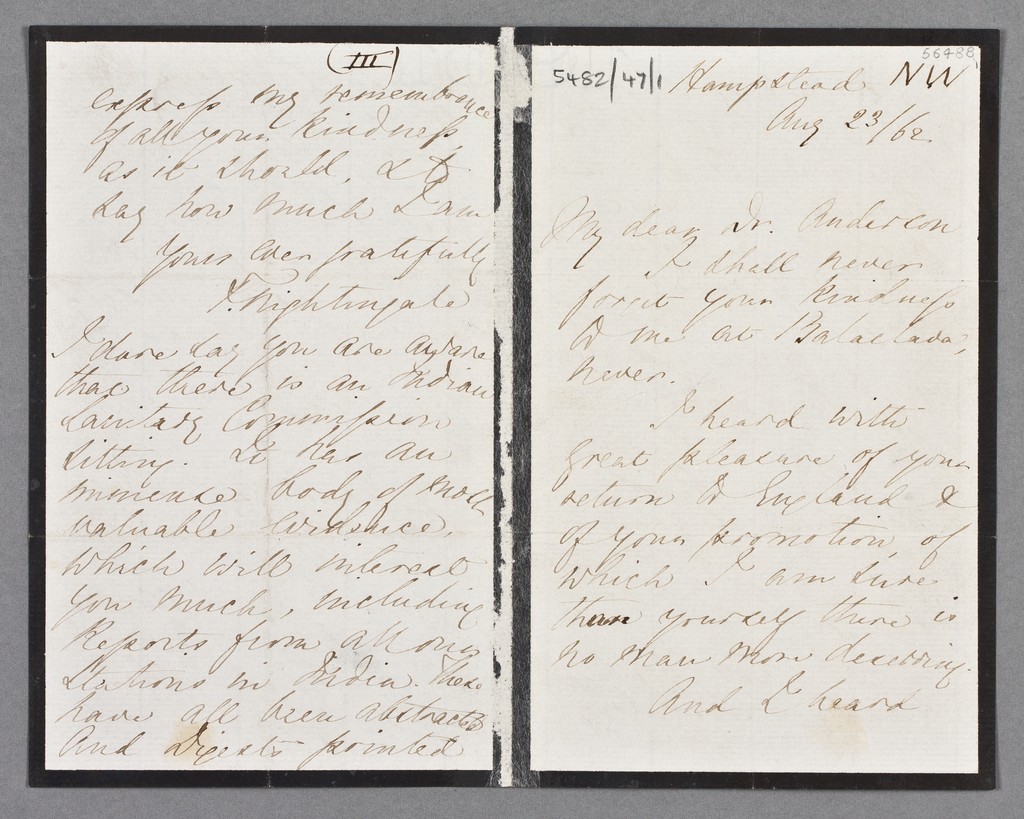 (III)
express my remembrance
of all your kindness,
as it should, & to
say how much I am
yours ever gratefully
F. Nightingale
I dare say you are aware
that there is an Indian
Sanitary Commission
sitting. It has an
immense body of most
valuable evidence,
which will interest
you much, including
Reports from all our
Stations in India. These
have all been abstracted
and Digests printed
56488
5482/47/1 Hampstead NW
Aug 23/62
My dear Dr. Anderson
I shall never
forget your kindness
to me at Balaclava,
never.
I heard with
great pleasure of your
return to England &
of your promotion, of
which I am sure
than yourself there is
no man more deserving.
And I heard